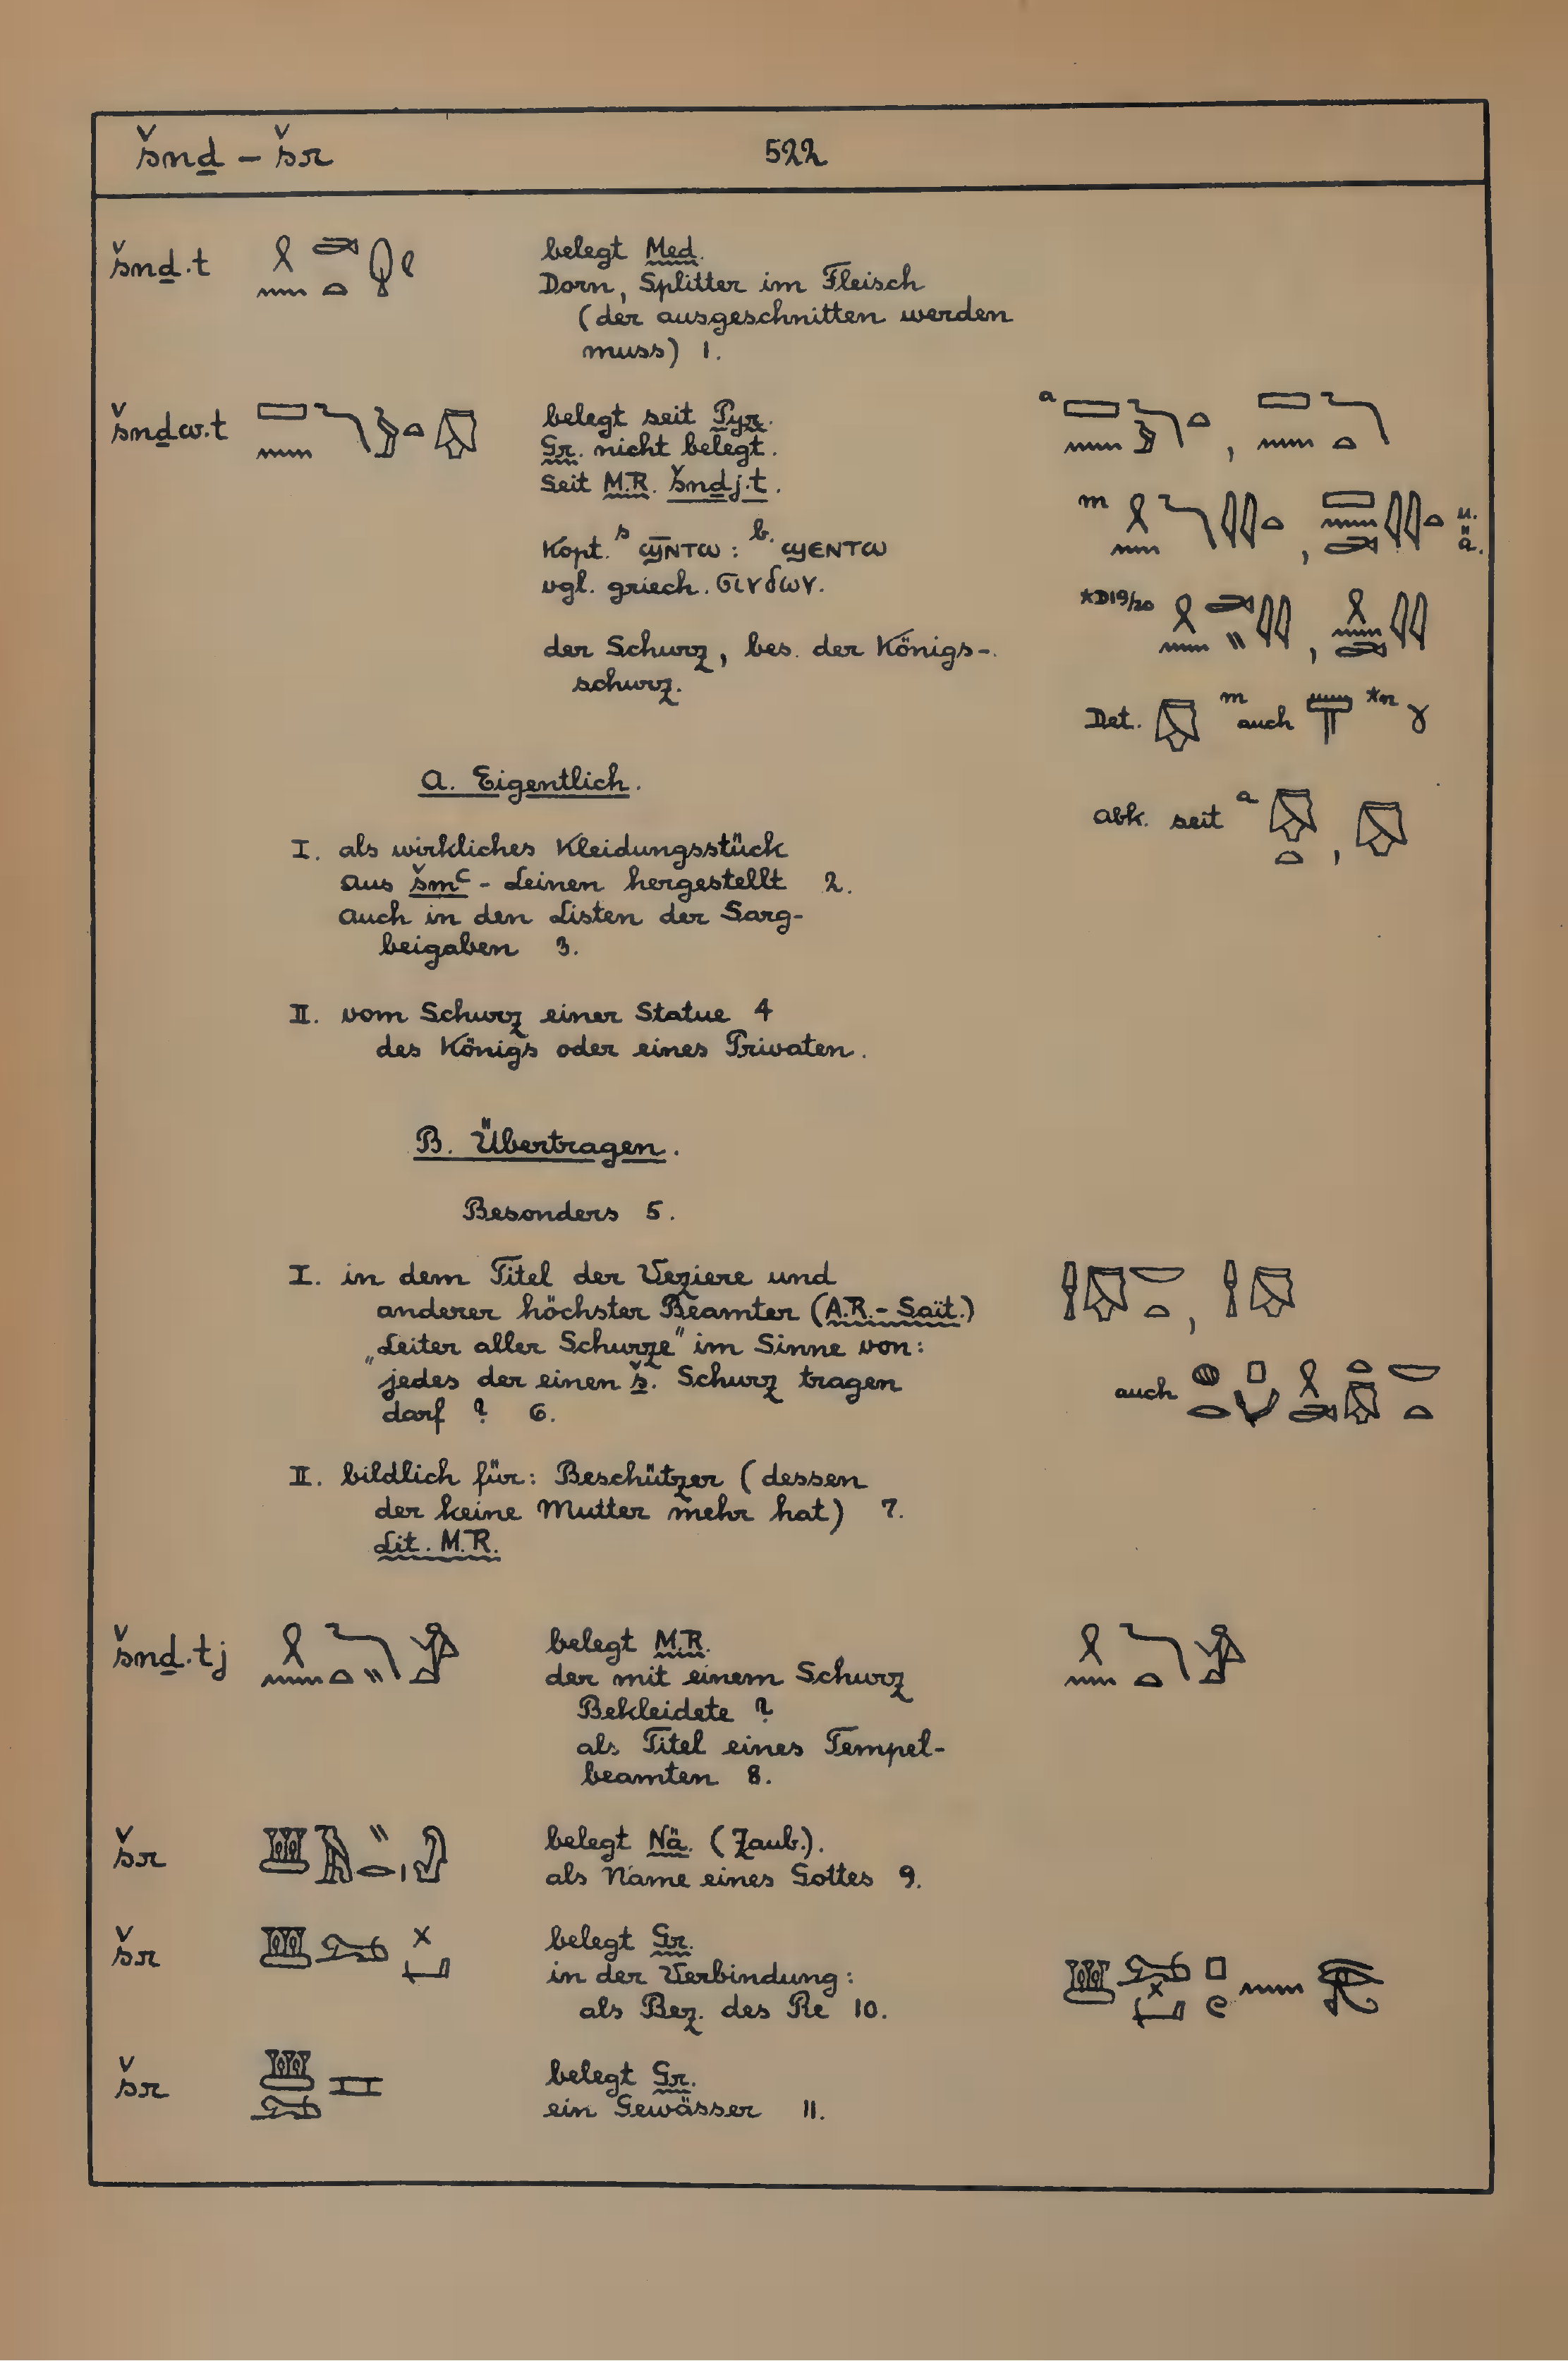 šnḏ – šr 522
šnḏ.t belegt Med.
Dorn, Splitter im Fleisch
(der ausgeschnitten werden
muss) 1.
šnḏw.t belegt seit Pyr.
Gr. nicht belegt.
Seit M.R. šnḏj.t.
Kopt. s ϣ̄ⲛⲧⲱ : b. ϣⲉⲛⲧⲱ
vgl. griech. σινδων.
der Schurz, bes. der Königs-
schurz.
a
m u. ä.
*D19/20
Det. m auch *n
Abk. seit a
A. Eigentlich.
I. als wirkliches Kleidungsstück
aus šmꜥ - Leinen hergestellt 2.
auch in den Listen der Sarg-
beigaben 3.
II. vom Schurz einer Statue 4
des Königs oder eines Privaten.
B. Übertragen.
Besonders 5.
I. in dem Titel der Veziere und
anderer höchster Beamter (A.R.- Saït.)
„Leiter aller Schurze" im Sinne von:
jedes der einen š. Schurz tragen
darf ? 6.
auch
II. bildlich für: Beschützer (dessen
der keine Mutter mehr hat) 7.
Lit. M.R.
šnḏ.tj belegt M.R.
der mit einem Schurz
Bekleidete ?
als Titel eines Tempel-
beamten 8.
šr belegt Nä. (Zaub.).
als Name eines Gottes 9.
šr belegt Gr.
in der Verbindung:
als Bez. des Re 10.
šr belegt Gr.
ein Gewässer 11.